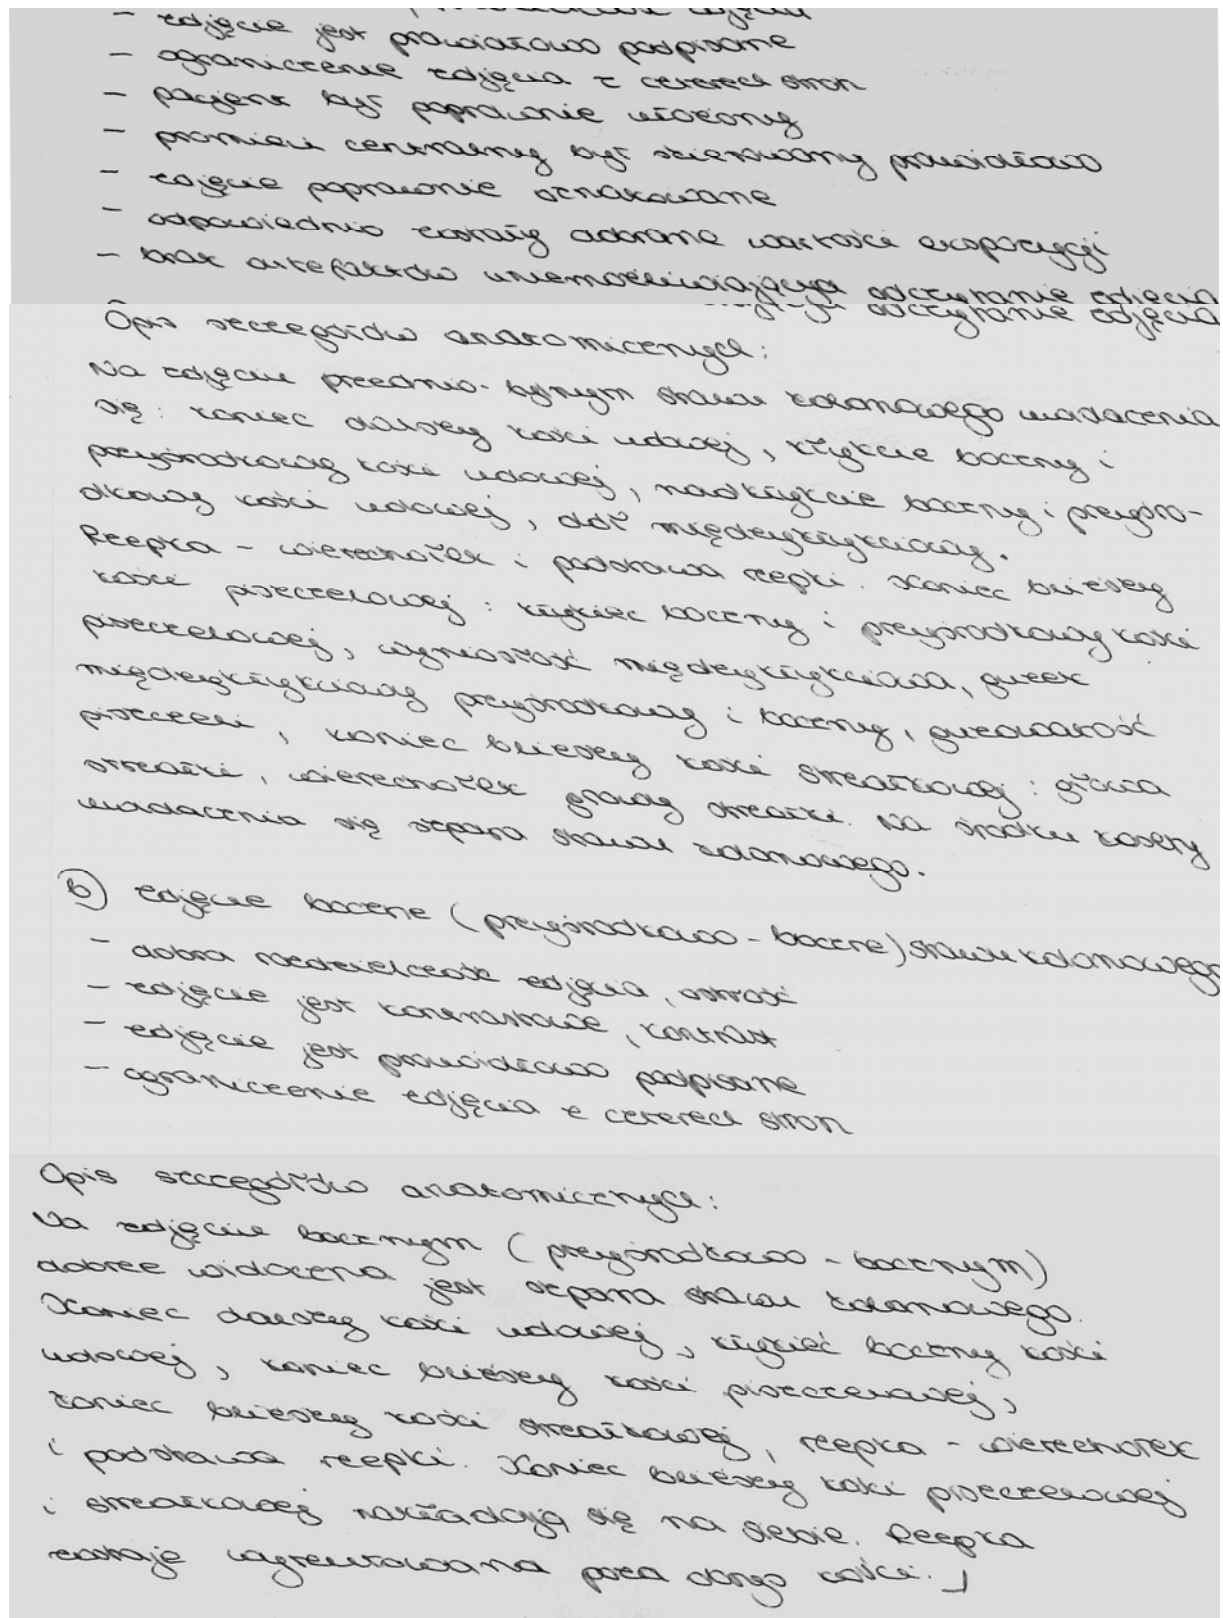 - zdjęcie jest prawidłowo podpisane
- ograniczenie zdjęcia z czterech stron
- pacjent był poprawnie ułożony
- promień centralny był skierowany prawidłowo
- zdjęcie poprawnie oznakowane
- odpowiednio zostały dobrane wartości ekspozycji
- brak artefaktów uniemożliwiających odczytanie zdjęcia
odczytanie zdjęcia
Opis szczegółów anatomicznych:
Na zdjęciu przednio-tylnym stawu kolanowego uwidacznia
się: koniec dalszy kości udowej, kłykcie boczny i
przyśrodkowy kości udowej, nadkłykcie boczny i przyśro-
dkowy kości udowej, dół międzykłykciowy.
Rzepka - wierzchołek i podstawa rzepki. Koniec bliższy
kości piszczelowej: kłykieć boczny i przyśrodkowy kości
piszczelowej, wyniosłość międzykłykciowa, guzek
międzykłykciowy przyśrodkowy i boczny, guzowatość
piszczeli, koniec bliższy kości strzałkowej: głowa
strzałki, wierzchołek głowy strzałki. Na środku kasety
uwidacznia się szpara stawu kolanowego.
b) zdjęcie boczne (przyśrodkowo - boczne) stawu kolanowego
- dobra rozdzielczość zdjęcia, ostrość
- zdjęcie jest kontrastowe, kontrast
- zdjęcie jest prawidłowo podpisane
- ograniczenie zdjęcia z czterech stron
Opis szczegółów anatomicznych:
Na zdjęciu bocznym (przyśrodkowo - bocznym)
dobrze widoczna jest szpara stawu kolanowego.
Koniec dalszy kości udowej, kłykieć boczny kości
udowej, koniec bliższy kości piszczelowej,
koniec bliższy kości strzałkowej, rzepka - wierzchołek
i podstawa rzepki. Koniec bliższy kości piszczelowej
i strzałkowej nakładają się na siebie. Rzepka
zostaje wyrzutowana poza obręb kości.